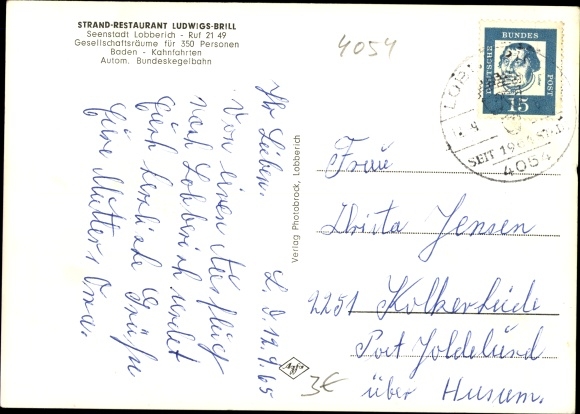 STRAND-RESTAURANT LUDWIGS-BRILL
Seenstadt Lobberich - Ruf 21 49
Gesellschaftsräume für 350 Personen
Baden - Kahnfahrten
Autom. Bundeskegelbahn
4054
DEUTSCHE BUNDES POST
15
LOB
SEIT
4054
L. d. 12.9.65
Ihr Lieben.
Von einem Ausflug
nach Lobberich sendet
Euch herzliche Grüße
Eure Mutter u. Oma.
Verlag Photobrock, Lobberich
Agfa
3€
Frau
Christa Jensen
2251 Kolkerheide
Post Joldelund
über Husum.